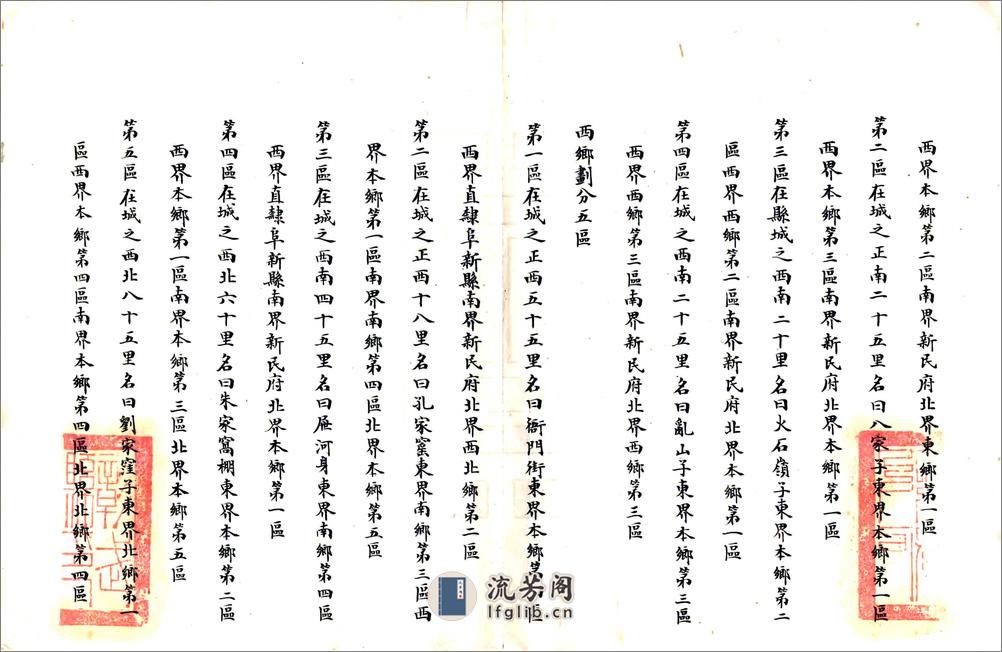 西界本鄉第二區南界新民府北界東鄉第一區
第二區在城之正南二十五里名曰八家子東界本鄉第一區
西界本鄉第三區南界新民府北界本鄉第一區
第三區在縣城之西南二十里名曰火石嶺子東界本鄉第二
區西界西鄉第二區南界新民府北界本鄉第一區
第四區在城之西南二十五里名曰亂山子東界本鄉第三區
西界西鄉第三區南界新民府北界西鄉第三區
西鄉劃分五區
第一區在城之正西五十五里名曰衙門街東界本鄉第區
西界直隸阜新縣南界新民府北界西北鄉第二區
第二區在城之正西十八里名曰孔家窰東界南鄉第三區西
界本鄉第一區南界南鄉第四區北界本鄉第五區
第三區在城之西南四十五里名曰河身東界南鄉第四區
西界直隸阜新縣南界新民府北界本鄉第一區
第四區在城之西北六十里名曰朱家窩棚東界本鄉第二區
西界本鄉第一區南界本鄉第三區北界本鄉第五區
第五區在城之西北八十五里名曰劉家窪子東界北鄉第一
區西界本鄉第四區南界本鄉第四區北界北鄉第四區
流芳阁
lfglib.cn